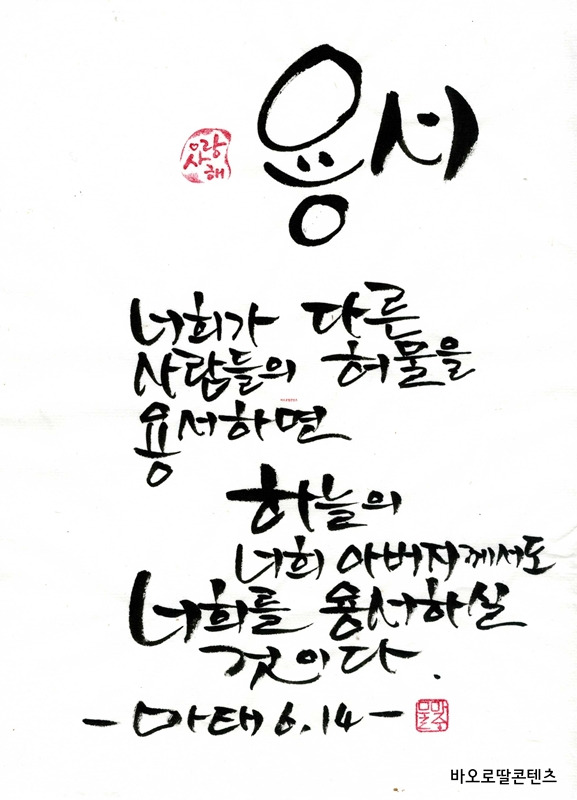 용서
사랑해
너희가 다른
사람들의 허물을
용서하면
하늘의
너희 아버지께서도
너희를 용서하실
것이다.
- 마태 6.14 -
바오로딸콘텐츠